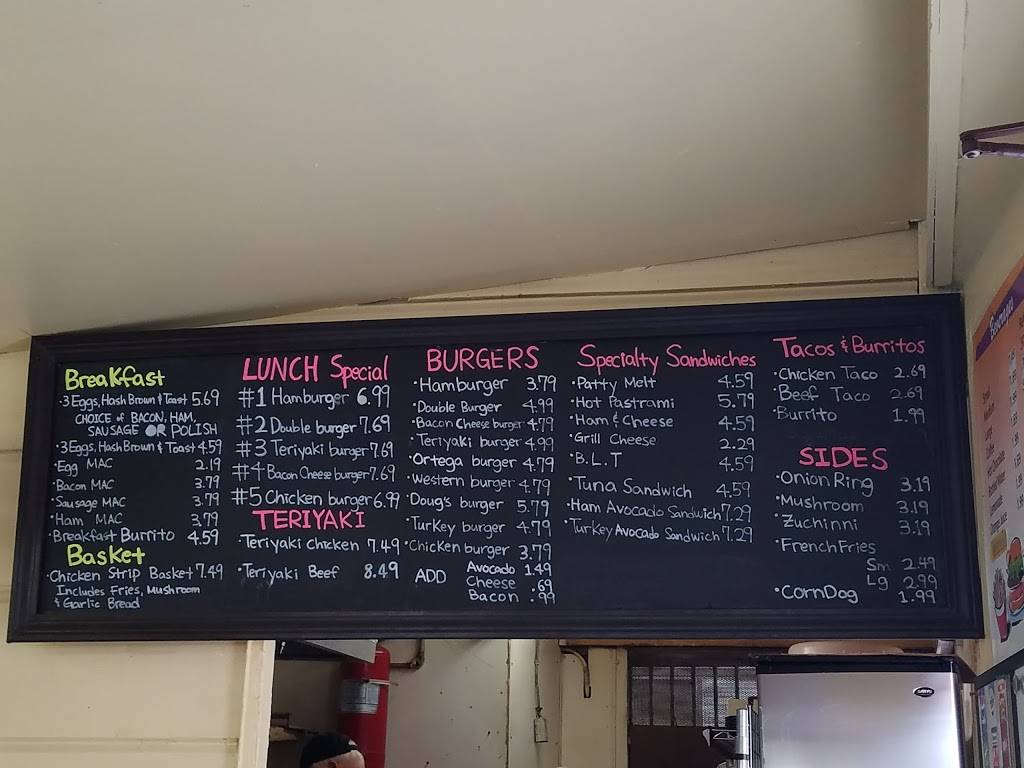 Breakfast
·3 Eggs, Hash Brown & Toast 5.69
CHOICE of BACON, HAM,
SAUSAGE OR POLISH
·3 Eggs, Hash Brown & Toast 4.59
·Egg MAC 2.19
·Bacon MAC 3.79
·Sausage MAC 3.79
·Ham MAC 3.79
·Breakfast Burrito 4.59
Basket
·Chicken Strip Basket 7.49
Includes Fries, Mushroom
& Garlic Bread
LUNCH Special
#1 Hamburger 6.99
#2 Double burger 7.69
#3 Teriyaki burger 7.69
#4 Bacon Cheese burger 7.69
#5 Chicken burger 6.99
TERIYAKI
·Teriyaki Chicken 7.49
·Teriyaki Beef 8.49
BURGERS
·Hamburger 3.79
·Double Burger 4.99
·Bacon Cheese burger 4.79
·Teriyaki burger 4.99
·Ortega burger 4.79
·Western burger 4.79
·Doug's burger 5.79
·Turkey burger 4.79
·Chicken burger 3.79
ADD Avocado 1.49
Cheese .69
Bacon .99
Specialty Sandwiches
·Patty Melt 4.59
·Hot Pastrami 5.79
·Ham & Cheese 4.59
·Grill Cheese 2.29
·B.L.T 4.59
·Tuna Sandwich 4.59
·Ham Avocado Sandwich 7.29
·Turkey Avocado Sandwich 7.29
Tacos & Burritos
·Chicken Taco 2.69
·Beef Taco 2.69
·Burrito 1.99
SIDES
·Onion Ring 3.19
·Mushroom 3.19
·Zuchinni 3.19
·French Fries
Sm 2.49
Lg 2.99
·Corn Dog 1.99